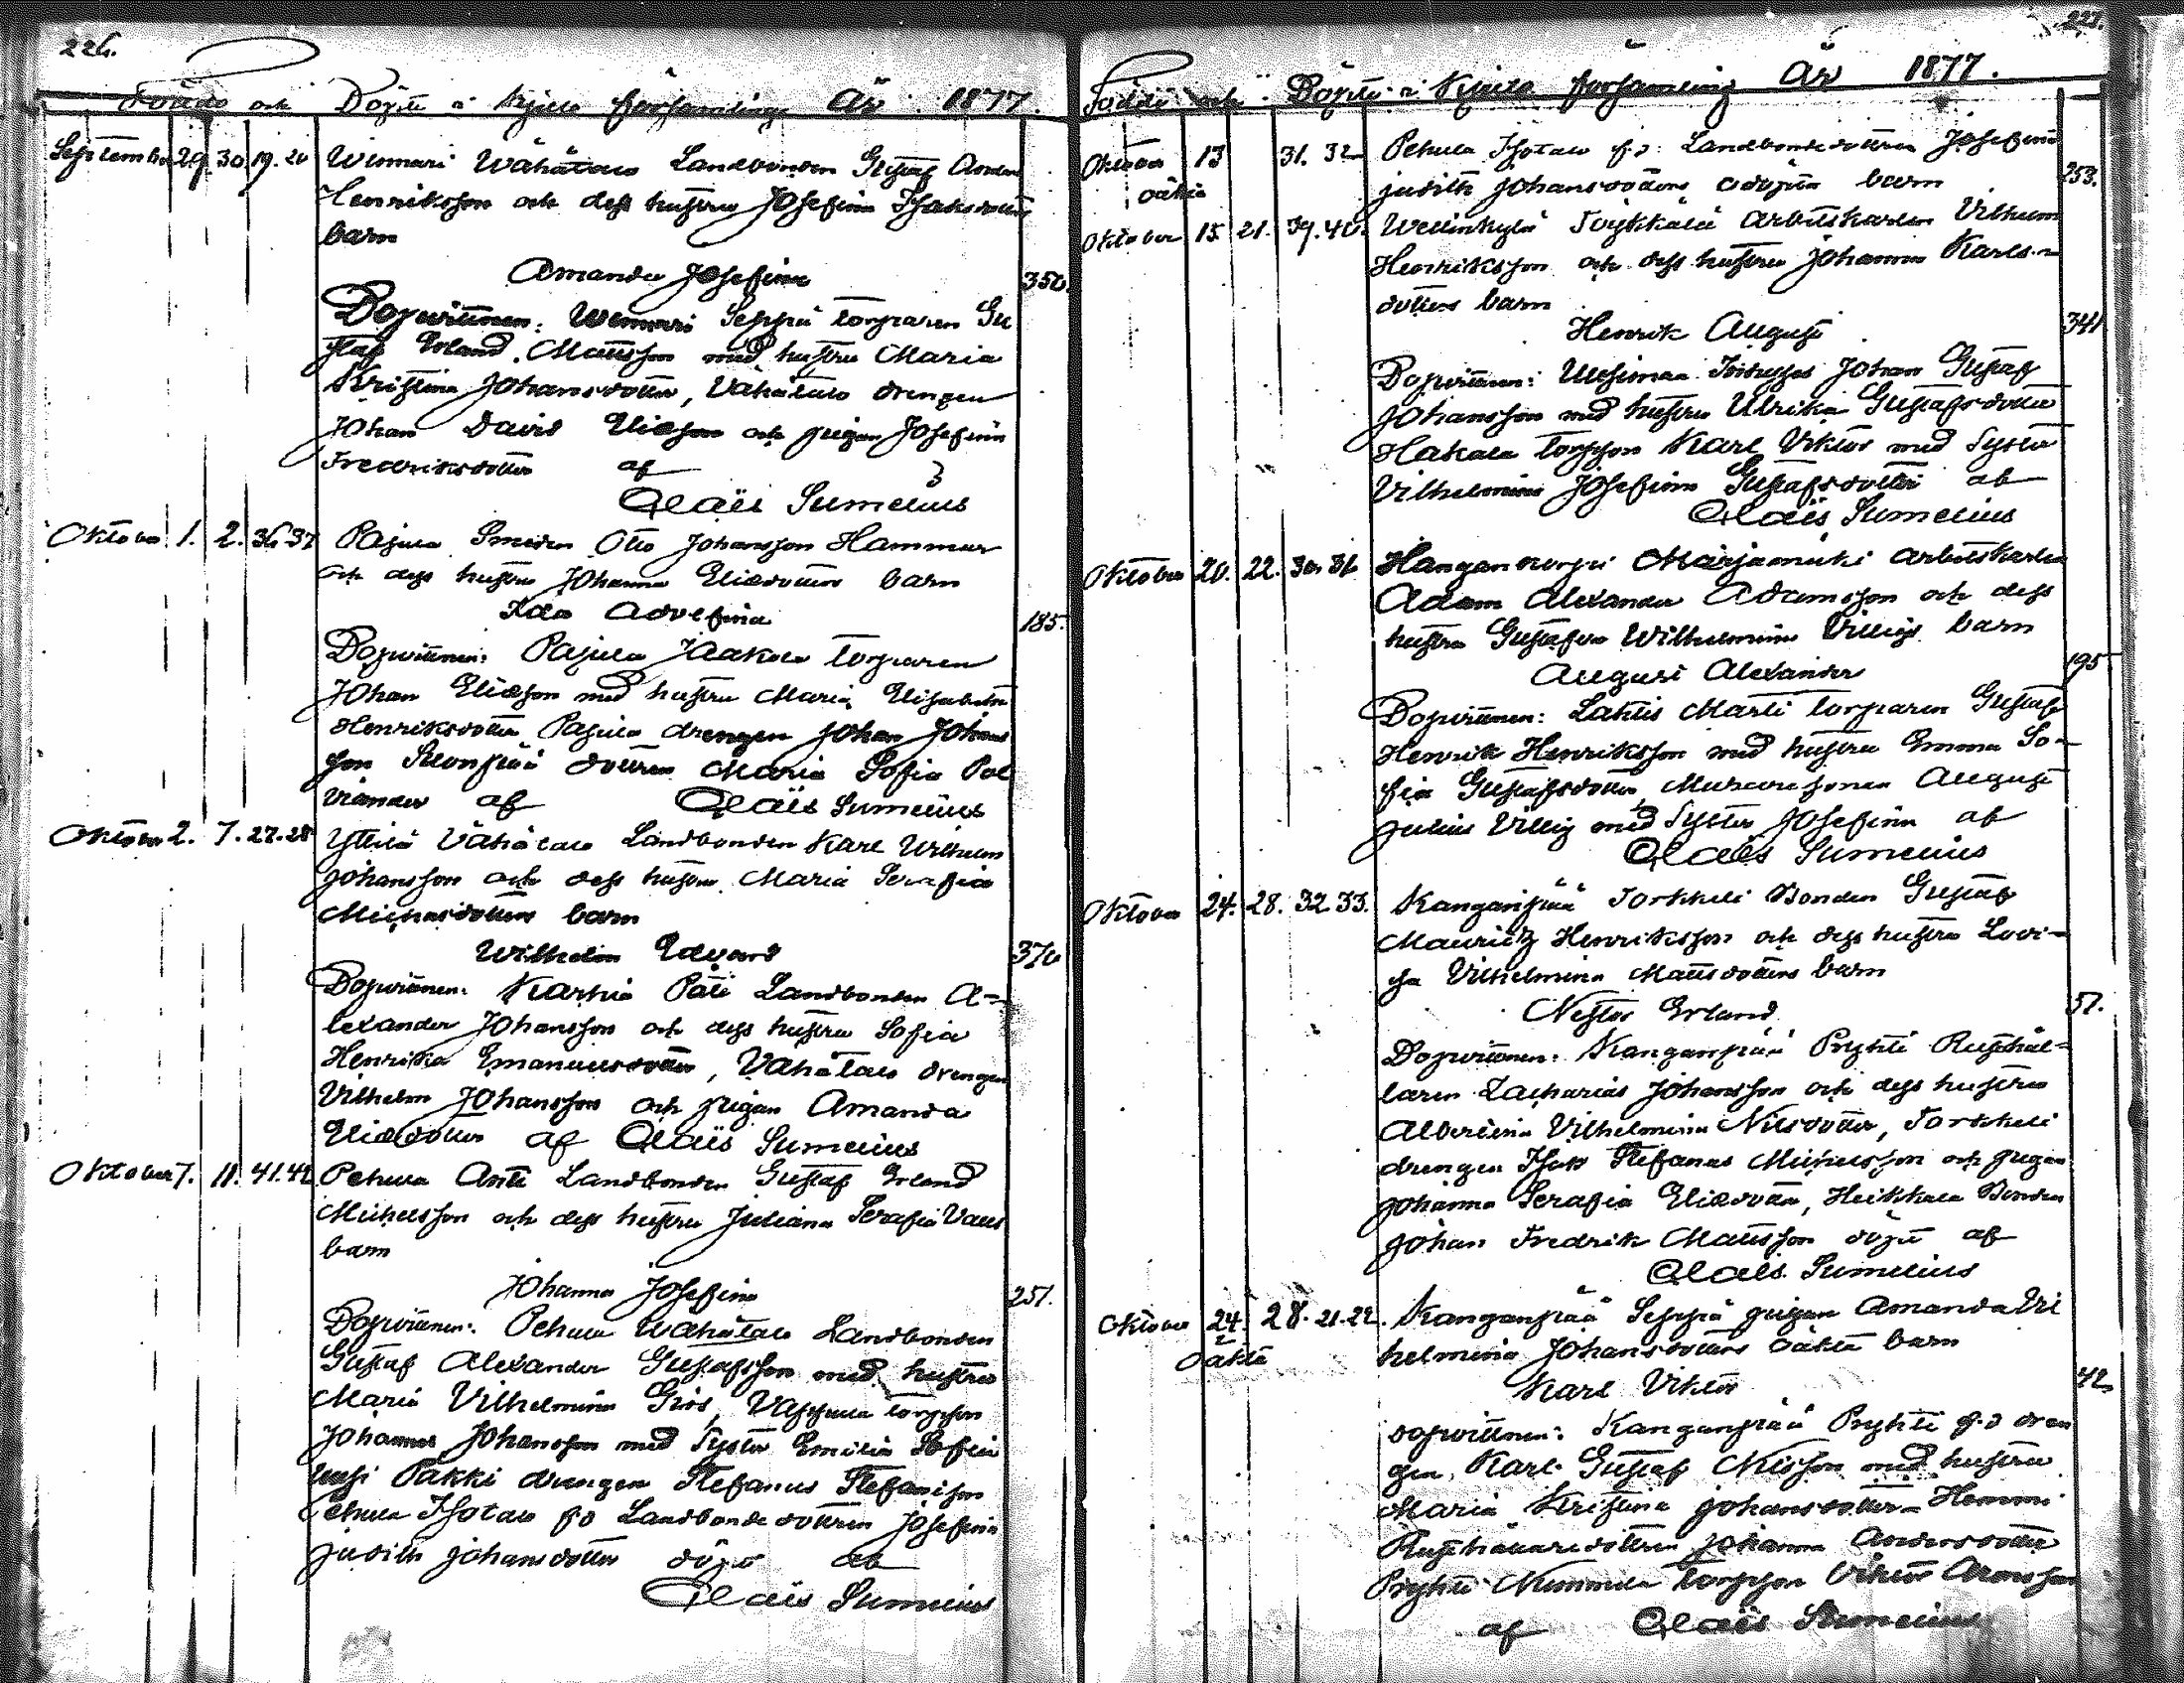 226.
Födde och Döpte i Kjulo församling År 1877.
September 29. 30. 19. 20 Winnari Wähätalo Landbonden Gustaf
Henriksson och dess hustru Josefina Isaksdotters
barn
Amanda Josefina 350.
Dopvittnen: Winnari Seppä torparen Gu
staf Erland Mattsson med hustru Maria
Kristina Johansdotter, Vähätalo drengen
Johan David Eliasson och pigan Josefina
Fredriksdotter af
Claës Sumelius
Oktober 1. 2. 36 37 Pajula Smeden Otto Johansson Hammar
och dess hustru Johanna Eliædotters barn
Ida Adolfina 185.
Dopvittnen: Pajula Jaakola torparen
Johan Eliæson med hustru Maria Elisabeth
Henriksdotter Pajula drengen Johan Johans
son dottren Maria Sofia Pol
viander af Claës Sumelius
Oktober 2. 7. 27. 28 Yttilä Vähätalo Landbonden Karl Wilhelm
Johansson och dess hustru Maria Serafia
Michelsdotters barn
Wilhelm Edvard 370
Dopvittnen: Karhia Päli Landbonden A-
lexander Johansson och dess hustru Sofia
Henrika Emanuelsdotter, Vähätalo drengen
Vilhelm Johansson och pigan Amanda
Eliædotter af Claës Sumelius
Oktober 7. 11. 41. 42 Pehula Antti Landbonden Gustaf Erland
Michelsson och dess hustru Juliana Serafia
barn
Johanna Josefina 251.
Dopvittnen: Pehula Wähätalo Landbonden
Gustaf Alexander Gustafsson med hustru
Maria Vilhelmina torpson
Johannes Johansson med Syster Emilia Sofia
Pakki drengen Stefanus Stefansson
Pehula Isotalo fd Landbonde dottren Josefina
Judith Johansdotter döpt af
Claës Sumelius
227.
Födde och Döpte i Kjulo församling År 1877.
Oktober 13 31. 32 Pehula Isotalo f.d. Landbondedottren Josefina
oäkta Judith Johansdotters odöpta barn 253.
Oktober 15 21. 39. 40. Wellinkylä Töykkälä Arbetskarlen Vilhelm
Henriksson och dess hustru Johanna Karls-
dotters barn
Henrik August 341
Dopvittnen: Johan Gustaf
Johansson med hustru Ulrika Gustafsdotter
Hakala torpson Karl Viktor med Syster
Vilhelmina Josefina Gustafsdotter af
Claës Sumelius
Oktober 20. 22. 30 31 Harjamäki Arbetskarlen
Adam Alexander Adamsson och dess
hustru Gustafva Wilhelmina Villigs barn
August Alexander 195
Dopvittnen: Lähtis Martti torparen Gustaf
Henrik Henriksson med hustru Emma So-
fia Gustafsdotter, August
Julius Villig med Syster Josefina af
Claës Sumelius
Oktober 24. 28. 32 33. Kanganpää Torkkeli Bonden Gustaf
Mauritz Henriksson och dess hustru Lovi-
sa Vilhelmina Mattsdotters barn
Nestor Erland 51.
Dopvittnen: Kanganpää Pryhti Rusthål-
laren Zacharias Johansson och dess hustru
Albertina Vilhelmina Nilsdotter, Torkkeli
drengen Isak Stefanus Michelsson och pigan
Johanna Serafia Eliædotter, Heikkala Bonden
Johan Fredrik Mattsson döpt af
Claës Sumelius
Oktober 24. 28. 21. 22. Kanganpää Seppä pigan Amanda Vil
oäkta helmina Johansdotters oäkta barn
Karl Viktor 42.
Dopvittnen: Kanganpää Pryhti f.d dren
gen Karl Gustaf Nilsson med hustru
Maria Kristina Johansdotter Hemmi
Rusthållaredottren Johanna Andersdotter
Pryhti Nummila torpson Viktor Aronsson
af Claës Sumelius